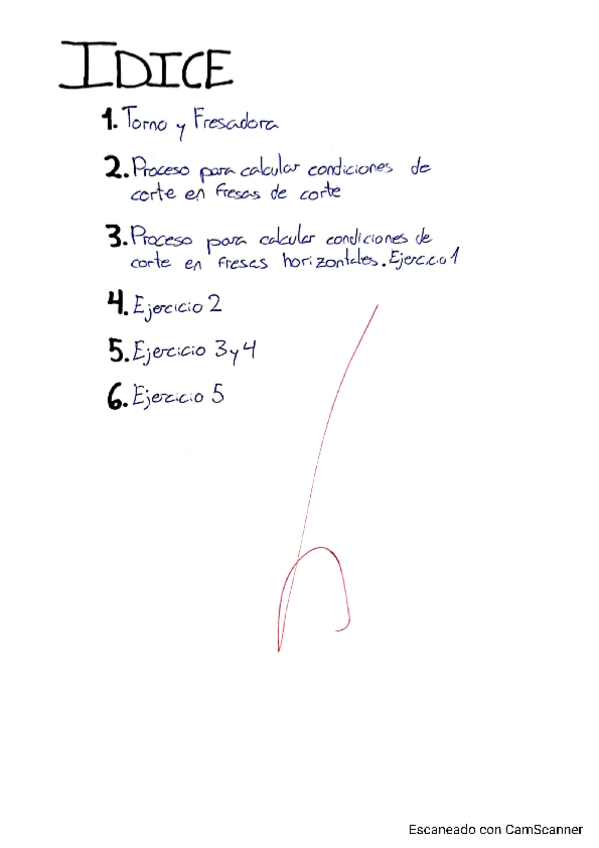 IDICE
1. Torno y Fresadora
2. Proceso para calcular condiciones de
corte en fresas de corte
3. Proceso para calcular condiciones de
corte en fresas horizontales. Ejercicio 1
4. Ejercicio 2
5. Ejercicio 3 y 4
6. Ejercicio 5
Escaneado con CamScanner